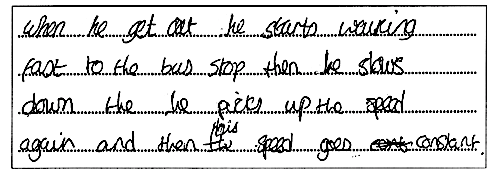 when he get out he starts walking
fast to the bus stop then he slows
down the he picks up the speed
again and then his speed goes constant.